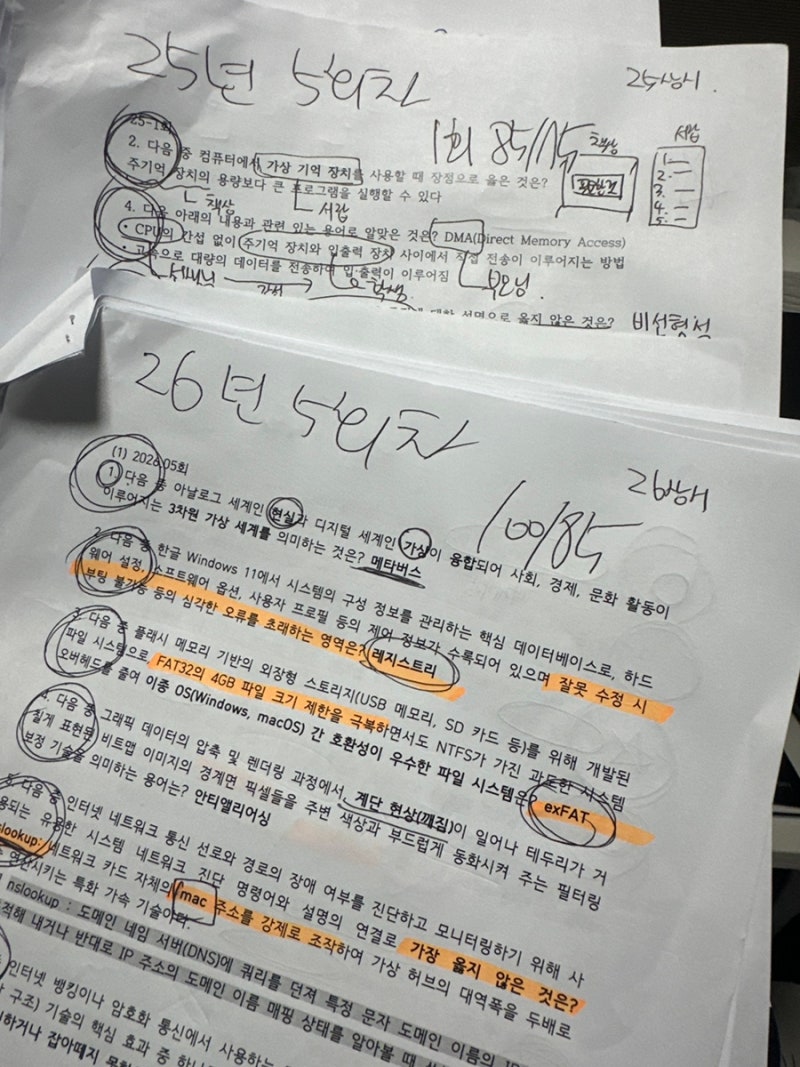 25년 5회차
25상시.
1회 85/75
책상
서랍
25-1회
2. 다음 중 컴퓨터에서 가상 기억 장치를 사용할 때 장점으로 옳은 것은?
주기억 장치의 용량보다 큰 프로그램을 실행할 수 있다
1.
2.
3.
4.
5.
책상
서랍
4. 다음 아래의 내용과 관련 있는 용어로 알맞은 것은? DMA(Direct Memory Access)
• CPU의 간섭 없이 주기억 장치와 입출력 장치 사이에서 직접 전송이 이루어지는 방법
• 고속으로 대량의 데이터를 전송하여 입·출력이 이루어짐
선생님
학생
부모님
대한 설명으로 옳지 않은 것은?
비선형성
26년 5회차
26상시
100/85
(1) 2026.05회
1. 다음 중 아날로그 세계인 현실과 디지털 세계인 가상이 융합되어 사회, 경제, 문화 활동이
이루어지는 3차원 가상 세계를 의미하는 것은? 메타버스
2. 다음 중 한글 Windows 11에서 시스템의 구성 정보를 관리하는 핵심 데이터베이스로, 하드
웨어 설정, 소프트웨어 옵션, 사용자 프로필 등의 제어 정보가 수록되어 있으며 잘못 수정 시
부팅 불가능 등의 심각한 오류를 초래하는 영역은? 레지스트리
3. 다음 중 플래시 메모리 기반의 외장형 스토리지(USB 메모리, SD 카드 등)를 위해 개발된
파일 시스템으로 FAT32의 4GB 파일 크기 제한을 극복하면서도 NTFS가 가진 과도한 시스템
오버헤드를 줄여 이종 OS(Windows, macOS) 간 호환성이 우수한 파일 시스템은? exFAT
4. 다음 중 그래픽 데이터의 압축 및 렌더링 과정에서 계단 현상(깨짐)이 일어나 테두리가 거
칠게 표현된 비트맵 이미지의 경계면 픽셀들을 주변 색상과 부드럽게 동화시켜 주는 필터링
보정 기술을 의미하는 용어는? 안티앨리어싱
5. 다음 중 인터넷 네트워크 통신 선로와 경로의 장애 여부를 진단하고 모니터링하기 위해 사
용되는 유용한 시스템 네트워크 진단 명령어와 설명의 연결로 가장 옳지 않은 것은?
nslookup: 네트워크 카드 자체의 mac 주소를 강제로 조작하여 가상 허브의 대역폭을 두배로
연산시키는 특화 가속 기술이다.
nslookup : 도메인 네임 서버(DNS)에 쿼리를 던져 특정 문자 도메인 이름의 IP
적해 내거나 반대로 IP 주소의 도메인 이름 매핑 상태를 알아볼 때
인터넷 뱅킹이나 암호화 통신에서 사용하는
구조) 기술의 핵심 효과 중 하나
하거나 잡아떼지 못